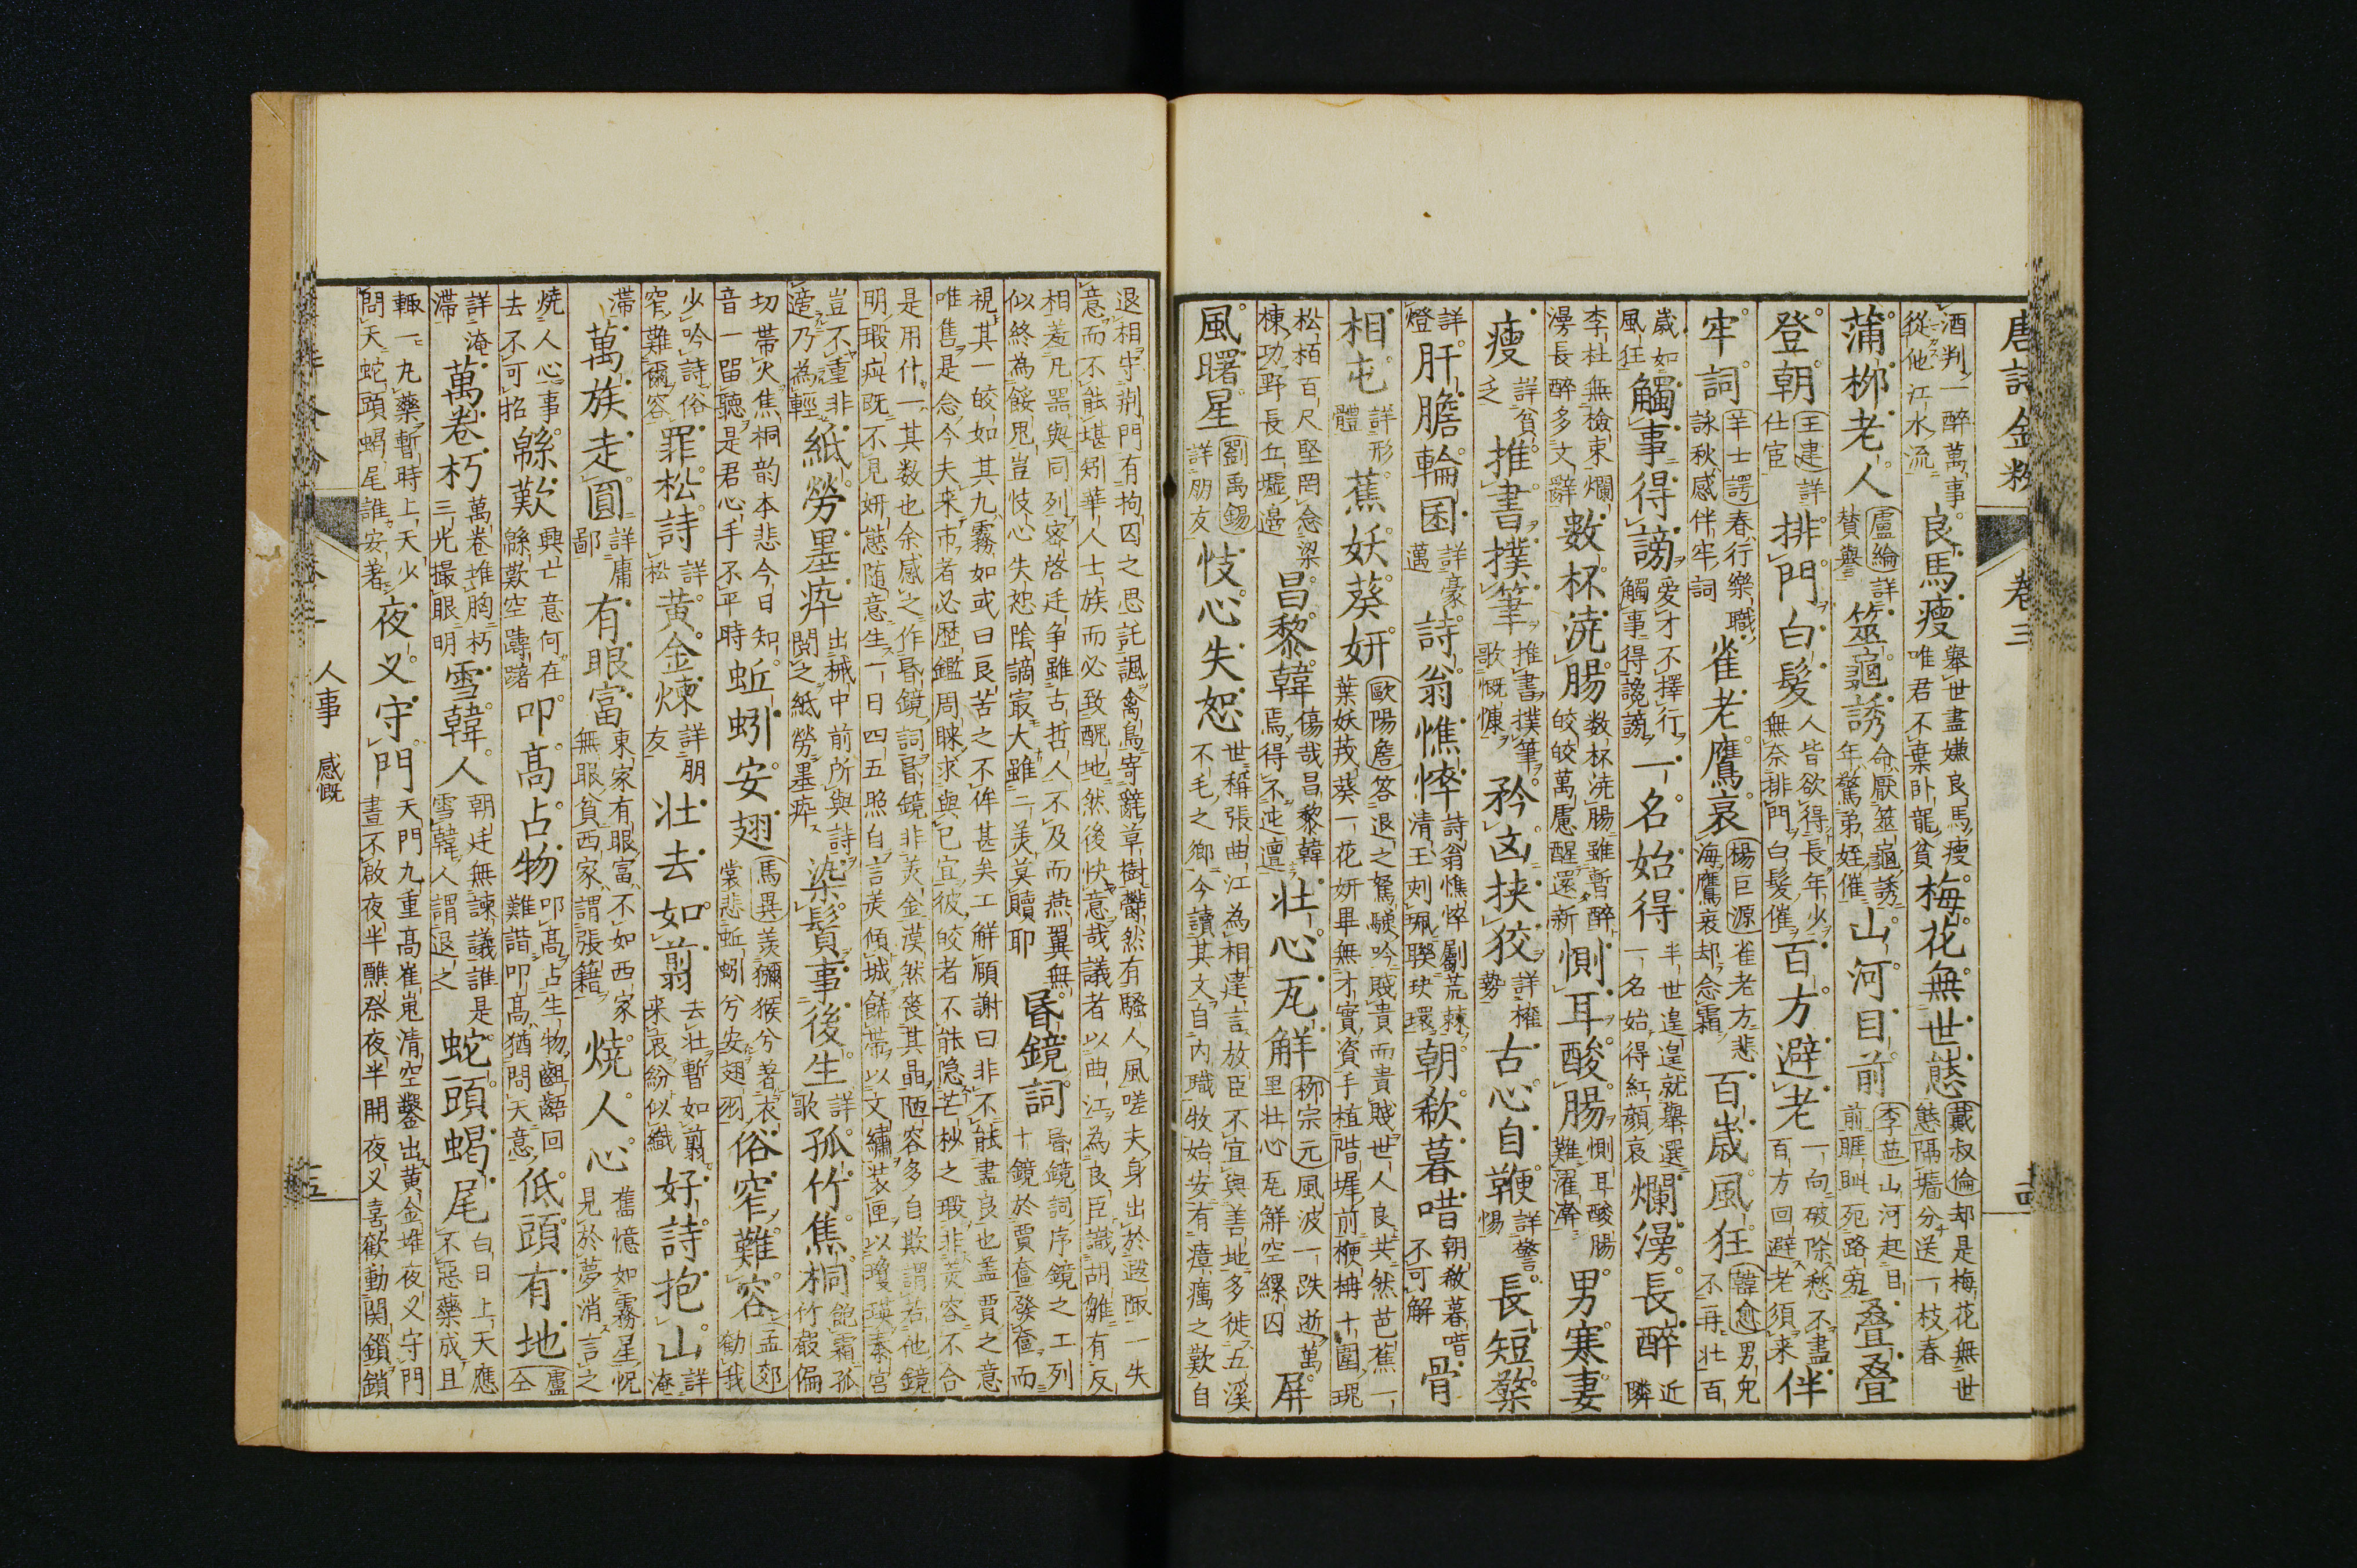 唐詩金粉 卷三 十四
酒判一醉萬事從他江水流 良馬瘦 舉世盡嫌良馬瘦唯君不棄臥龍貧 梅花無世態 戴叔倫却是梅花無世態隔墻分送一枝春
蒲柳老人 盧綸詳贊與 筮龜誘 命厭筮龜誘年驚弟姪催 山河目前 李益山河起目前睚眦死路旁 疊疊
登朝 王建詳仕宦 排門白髮 人皆欲得長年少無奈排門白髮催 百方避老 一向破除愁不盡百方回避老須來 伴
牢詞 羊士諤春行樂職詠秋感伴牢詞 雀老鷹哀 楊巨源雀老方悲海鷹衰却念霜 百歳風狂 韓愈男兒不再壯百
歳如風狂 觸事得謗 愛才不擇行觸事得讒謗 一名始得 半世遑遑就舉選一名始得紅顏衰 爛漫長醉 近隣
李杜無檢束爛漫長醉多文辭 數杯澆腸 数杯澆腸雖暫醉皎皎萬慮醒還新 惻耳酸腸 惻耳酸腸難濯澣 男寒妻
瘦 詳貧乏 推書撲筆 推書撲筆歌慨慷 矜凶挾狡 詳權勢 古心自鞭 詳警惕 長短檠
詳燈 肝膽輪囷 詳豪邁 詩翁憔悴 詩翁憔悴劚荒棘清玉刻珮聯玦環 朝欷暮唶 朝欷暮唶不可解 骨
相屯 詳形體 蕉妖葵妍 歐陽詹答退之駑驥吟賤貴而貴賤世人良共然芭蕉一葉妖茙葵一花妍畢無才實資手植階墀前楩柟十圍瑰
松柏百尺堅罔念梁棟功野長丘墟邊 昌黎韓 傷哉昌黎韓焉得不迍邅 壯心瓦解 柳宗元風波一跌逝萬里壯心瓦解空縲囚 屏
風曙星 劉禹錫詳朋友 忮心失恕 世稱張曲江為相建言放臣不宜與善地多徙五溪不毛之鄉今讀其文自内職牧始安有瘴癘之歎自
退相守荊門有拘囚之思託諷禽鳥寄辭草樹鬱然有騷人風嗟夫身出於遐陬一失
意而不能堪矧華人士族而必致醜地然後快意哉議者以曲江為良臣識胡雛有反
相羞凡器與同列密啓廷争雖古哲人不及而燕翼無似終為餒鬼豈忮心失恕陰謫最大雖二美莫贖耶 昏鏡詞 昏鏡詞序鏡之工列十鏡於賈奩發奩而
視其一皎如其九霧如或曰良苦之不侔甚矣工解頤謝曰非不能盡良也盖賈之意
唯售是念今夫来市者必歴鑑周睞求與己宜彼皎者不能隐芒杪之瑕非美容不合
是用什一其数也余感之作昏鏡詞昏鏡非美金漠然喪其晶陋容多自欺謂若他鏡
明瑕疵既不見妍態随意生一日四五照自言美傾城飾帶以文繡装匣以瓊瑛秦宮
豈不重非適乃為輕 紙勞墨瘁 出槭中前所與詩閲之紙勞墨瘁 染鬚事後生 詳歌 孤竹焦桐 飽霜孤竹嚴偏
切帶火焦桐韵本悲今日知音一留聽是君心手不平時 蚯蚓安翅 馬異羨獮猴兮著衣裳悲蚯蚓兮安翅羽 俗窄難容 孟郊勸我
少吟詩俗窄難爾容 罪松詩 詳松 黄金煉 詳朋友 壮去如翦 去壮暫如翦来哀紛似織 好詩抱山 詳淹
滯 萬族走圓 詳庸鄙 有眼富 東家有眼富不如西家無眼貧西家謂張籍 燒人心 舊憶如霧星怳見於夢消言之
燒人心事去不可招 緜歎 興亡意何在緜歎空躊躇 叩髙占物 叩髙占生物齟齬回難諧叩髙猶問天意 低頭有地 盧仝
詳淹滯 萬卷朽 萬卷堆胸朽三光撮眼明 雪韓人 朝廷無諫議誰是雪韓人謂退之 蛇頭蝎尾 白日上天應不惡藥成且
輙一丸藥暫時上天少問天蛇頭蝎尾誰安著 夜叉守門 天門九重髙崔嵬清空鑿出黄金堆夜叉守門晝不啟夜半醮祭夜半開夜叉喜歡動関鎖鎖
人事 感慨 十五